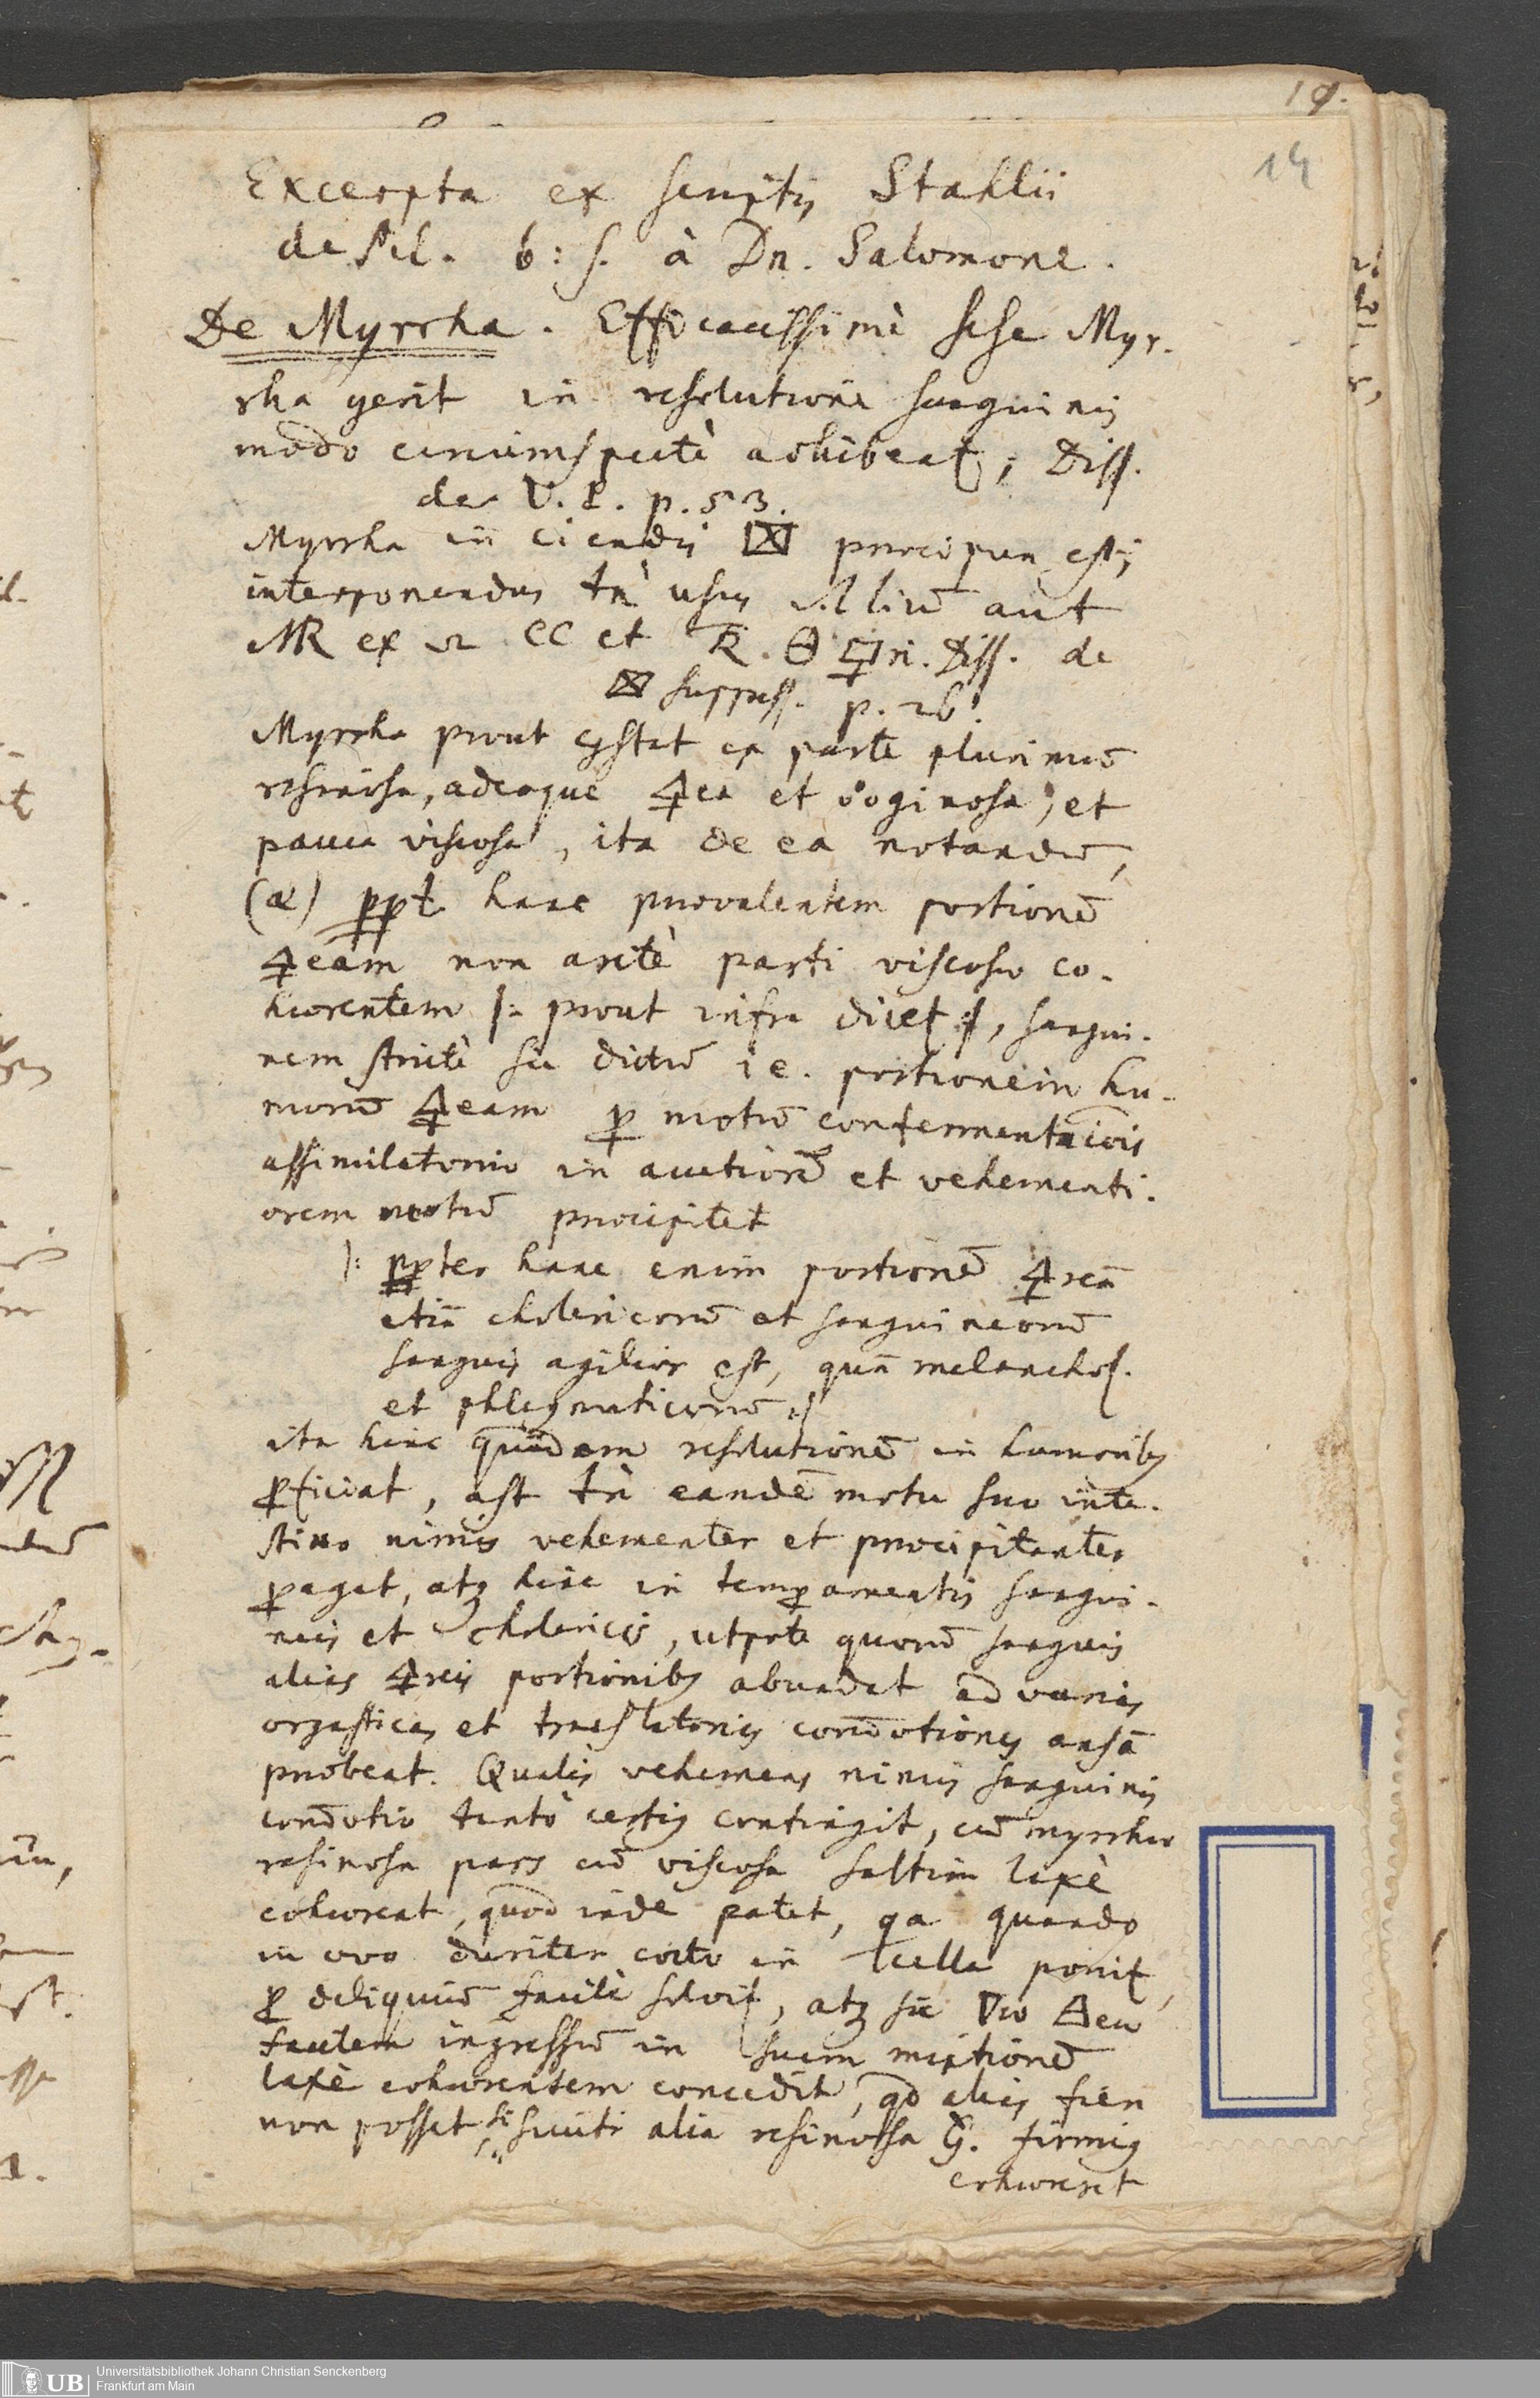 19.
14
Excerpta ex scriptis Stahlii
de Pil. b: s. à Dn. Salomone.
De Myrrha. Efficacissimè sese Myr.
rha gerit in resolutione sanguinis
modo circumspectè adhibeat; Diss.
de V. P. p. 53.
Myrrha in ciendis præcipua est;
interponendus tñ usus aut
ex CC et R. 🜔 🜍ri. Diss. de
suppress. p. 26.
Myrrha prout cstat ex parte plurimū
resinosa, adeoque 🜍ea et ooginosa, et
pauca viscosa, ita de ea notandū,
(α) ppt. hanc prævalentem portionē
🜍eam non arctè parti viscosæ co-
hærentem |: prout infra dicet :|, sangui-
nem strictè sic dictū i e. portionem hu-
morū 🜍eam p motū confermentaōis
assimilatorio in auctiorē et vehementi-
orem motū præcipitet
|: ppter hanc enim portionē 🜍reā
etiā cholericorū et sanguineorū
sanguis agilior est, quā melanchol.
et phlegmaticorū :|
ita hinc quidem resolutionē in humoribꝫ
pficiat, ast tñ eandē motu suo inte-
stino nimis vehementer et præcipitanter
pagat, atꝫ hinc in tempamentis sangui-
neis et cholericis, utpote quorū sanguis
aliàs 🜍reis portionibꝫ abundat ad varias
orgasticas et translatorias com̄otiones ansā
præbeat. Qualis vehemens nimis sanguinis
com̄otio tantò certiꝰ contingit, cū myrrhæ
resinosa pars cū viscosa saltim laxè
cohæreat, quod inde patet, qa quando
in ovo duriter cocto in cella ponit,
p deliquiū facilè solvit, atꝫ sic 🜄æ 🜁eæ
facilem ingressū in suam mixtionē
laxè cohærentem concedit, qd aliàs fieri
non posset, si sicuti alia resinosa G̃. firmiꝰ
cohæreret
Universitätsbibliothek Johann Christian Senckenberg
Frankfurt am Main
UB